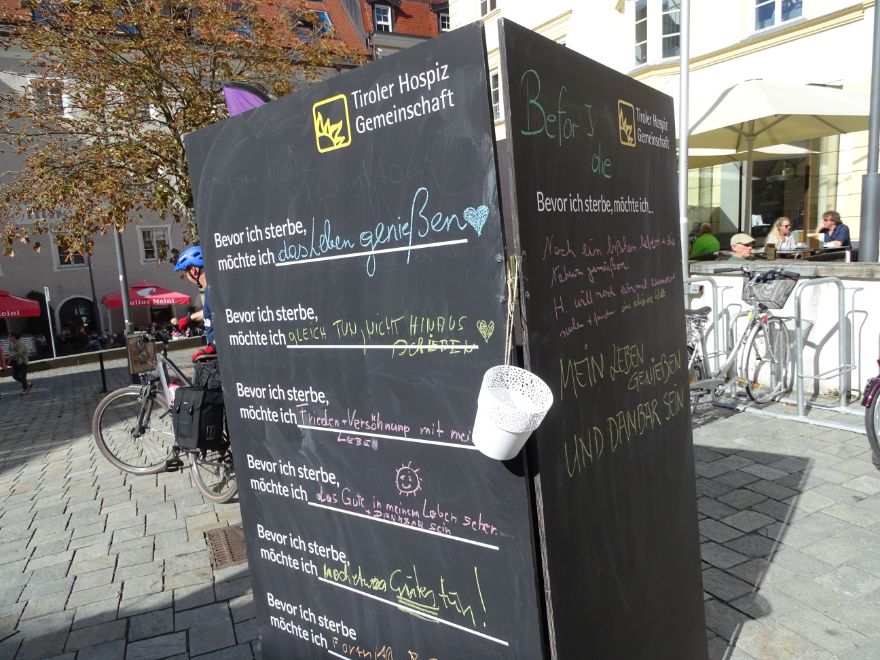 Tiroler Hospiz
Gemeinschaft
Bevor ich sterbe,
möchte ich das Leben genießen
Bevor ich sterbe,
möchte ich GLEICH TUN, NICHT HINAUS
SCHIEBEN
Bevor ich sterbe,
möchte ich Frieden + Versöhnung mit mei
LEBEN
Bevor ich sterbe,
möchte ich das Gute in meinem Leben sehen
+ DANKBAR sein
Bevor ich sterbe,
möchte ich noch etwas Gutes tun!
Bevor ich sterbe
möchte ich
Befor I
die
Tiroler Hospiz
Gemeinschaft
Bevor ich sterbe, möchte ich...
Noch ein bißchen leben + die
Natur genießen
H. will noch einmal
MEIN LEBEN
GENIEßEN
UND DANBAR SEIN
Julius Meinl